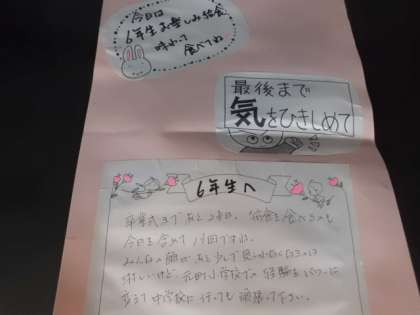 今日は
6年生お楽しみ給食
味わって
食べてね
最後まで
気をひきしめて
6年生へ
卒業式まであと2日。給食を食べるのも
今日を含めて1回ですね。
みんなの顔が あと少しで見られなくなるのは
さみしいけど、元町小学校での経験をパワーに
変えて中学校に行っても頑張って下さい。